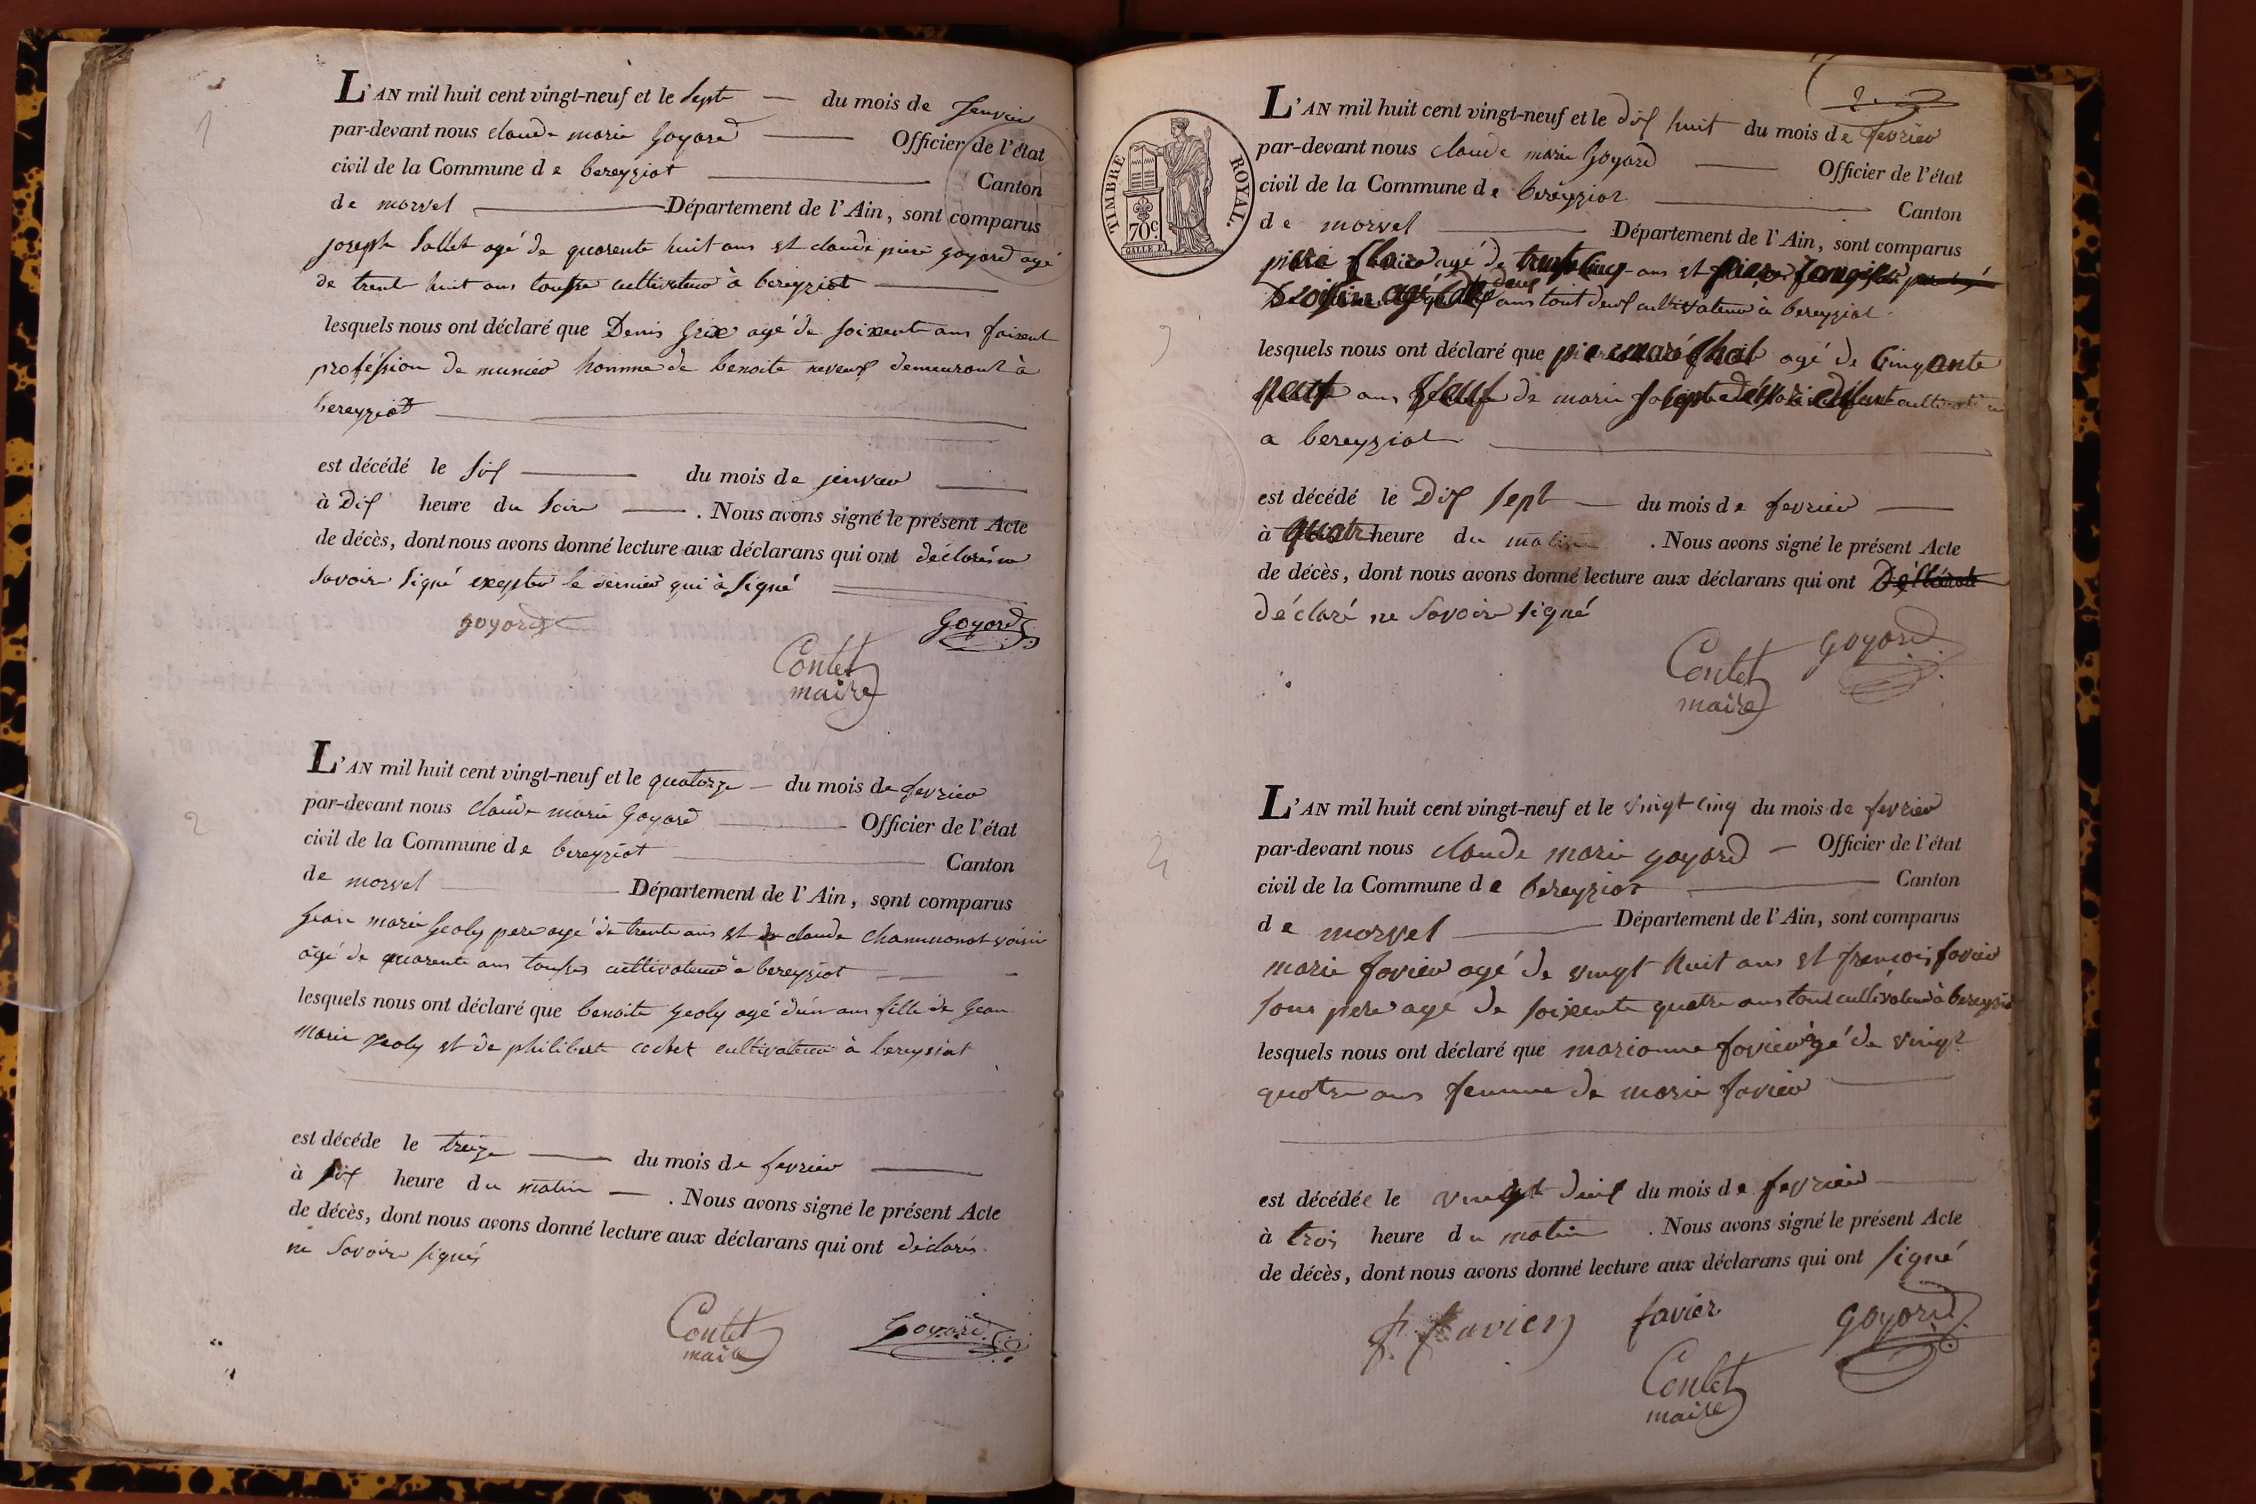 1
L'AN mil huit cent vingt-neuf et le sept — du mois de Jenvier
par-devant nous claude marie Goyard — Officier de l'état
civil de la Commune de bereyziat — Canton
de morvel — Département de l'Ain, sont comparus
joseph Pallet agé de quarente huit ans et claude piere goyard agé
de trent huit ans tousse cultivateur à bereyziat —
lesquels nous ont déclaré que Denis Grix agé de soixente ans faisent
proféssion de munier homme de benoite neveux demeuront à
bereyziat —
est décédé le six — du mois de jenvier —
à Dix heure du soire — . Nous avons signé le présent Acte
de décès, dont nous avons donné lecture aux déclarans qui ont déclaré ne
savoir signé exepter le dernier qui à signé
goyard Goyard
Contet
maire
2
L'AN mil huit cent vingt-neuf et le quatorze — du mois de fevrier
par-devant nous claude marie Goyard — Officier de l'état
civil de la Commune de bereyziat — Canton
de morvel — Département de l'Ain, sont comparus
Jean marie Geoly pere agé de trente ans et claude chammonot voisin
âgé de quarente ans tousses cultivateur a bereyziat —
lesquels nous ont déclaré que benoite Geoly agé d'un ans fille de Jean
marie Geoly et de philiberte cochet cultivateur à bereysiat
est décéde le treize — du mois de fevrier —
à six heure du matin — . Nous avons signé le présent Acte
de décès, dont nous avons donné lecture aux déclarans qui ont déclarés
ne savoire signés
Contet Goyard
maire
2
TIMBRE ROYAL
70c
L'AN mil huit cent vingt-neuf et le dix huit du mois de fevrier
par-devant nous claude marie Goyard — Officier de l'état
civil de la Commune de bereyziat — Canton
de morvel — Département de l'Ain, sont comparus
piere agé de trente cinq ans et
voisin agé deux ans tout deux cultivateur à bereyziat
lesquels nous ont déclaré que agé de Cinquante
ans de marie joseph cultivateur
a bereyziat —
est décédé le Dix sept — du mois de fevrier —
à quatre heure du matin . Nous avons signé le présent Acte
de décès, dont nous avons donné lecture aux déclarans qui ont
déclaré ne savoir signé
Contet Goyard
maire
L'AN mil huit cent vingt-neuf et le vingt cinq du mois de fevrier
par-devant nous claude marie goyard — Officier de l'état
civil de la Commune de bereyziat — Canton
de morvel — Département de l'Ain, sont comparus
marie favier agé de vingt huit ans et francois favier
sons pere agé de soixente quatre ans tout cultivateur à bereyziat
lesquels nous ont déclaré que marianne favier agé de vingt
quatre ans femme de marie favier —
est décédée le vingt deux du mois de fevrier —
à trois heure du matin . Nous avons signé le présent Acte
de décès, dont nous avons donné lecture aux déclarans qui ont signé
f. favier favier goyard
Contet
maire